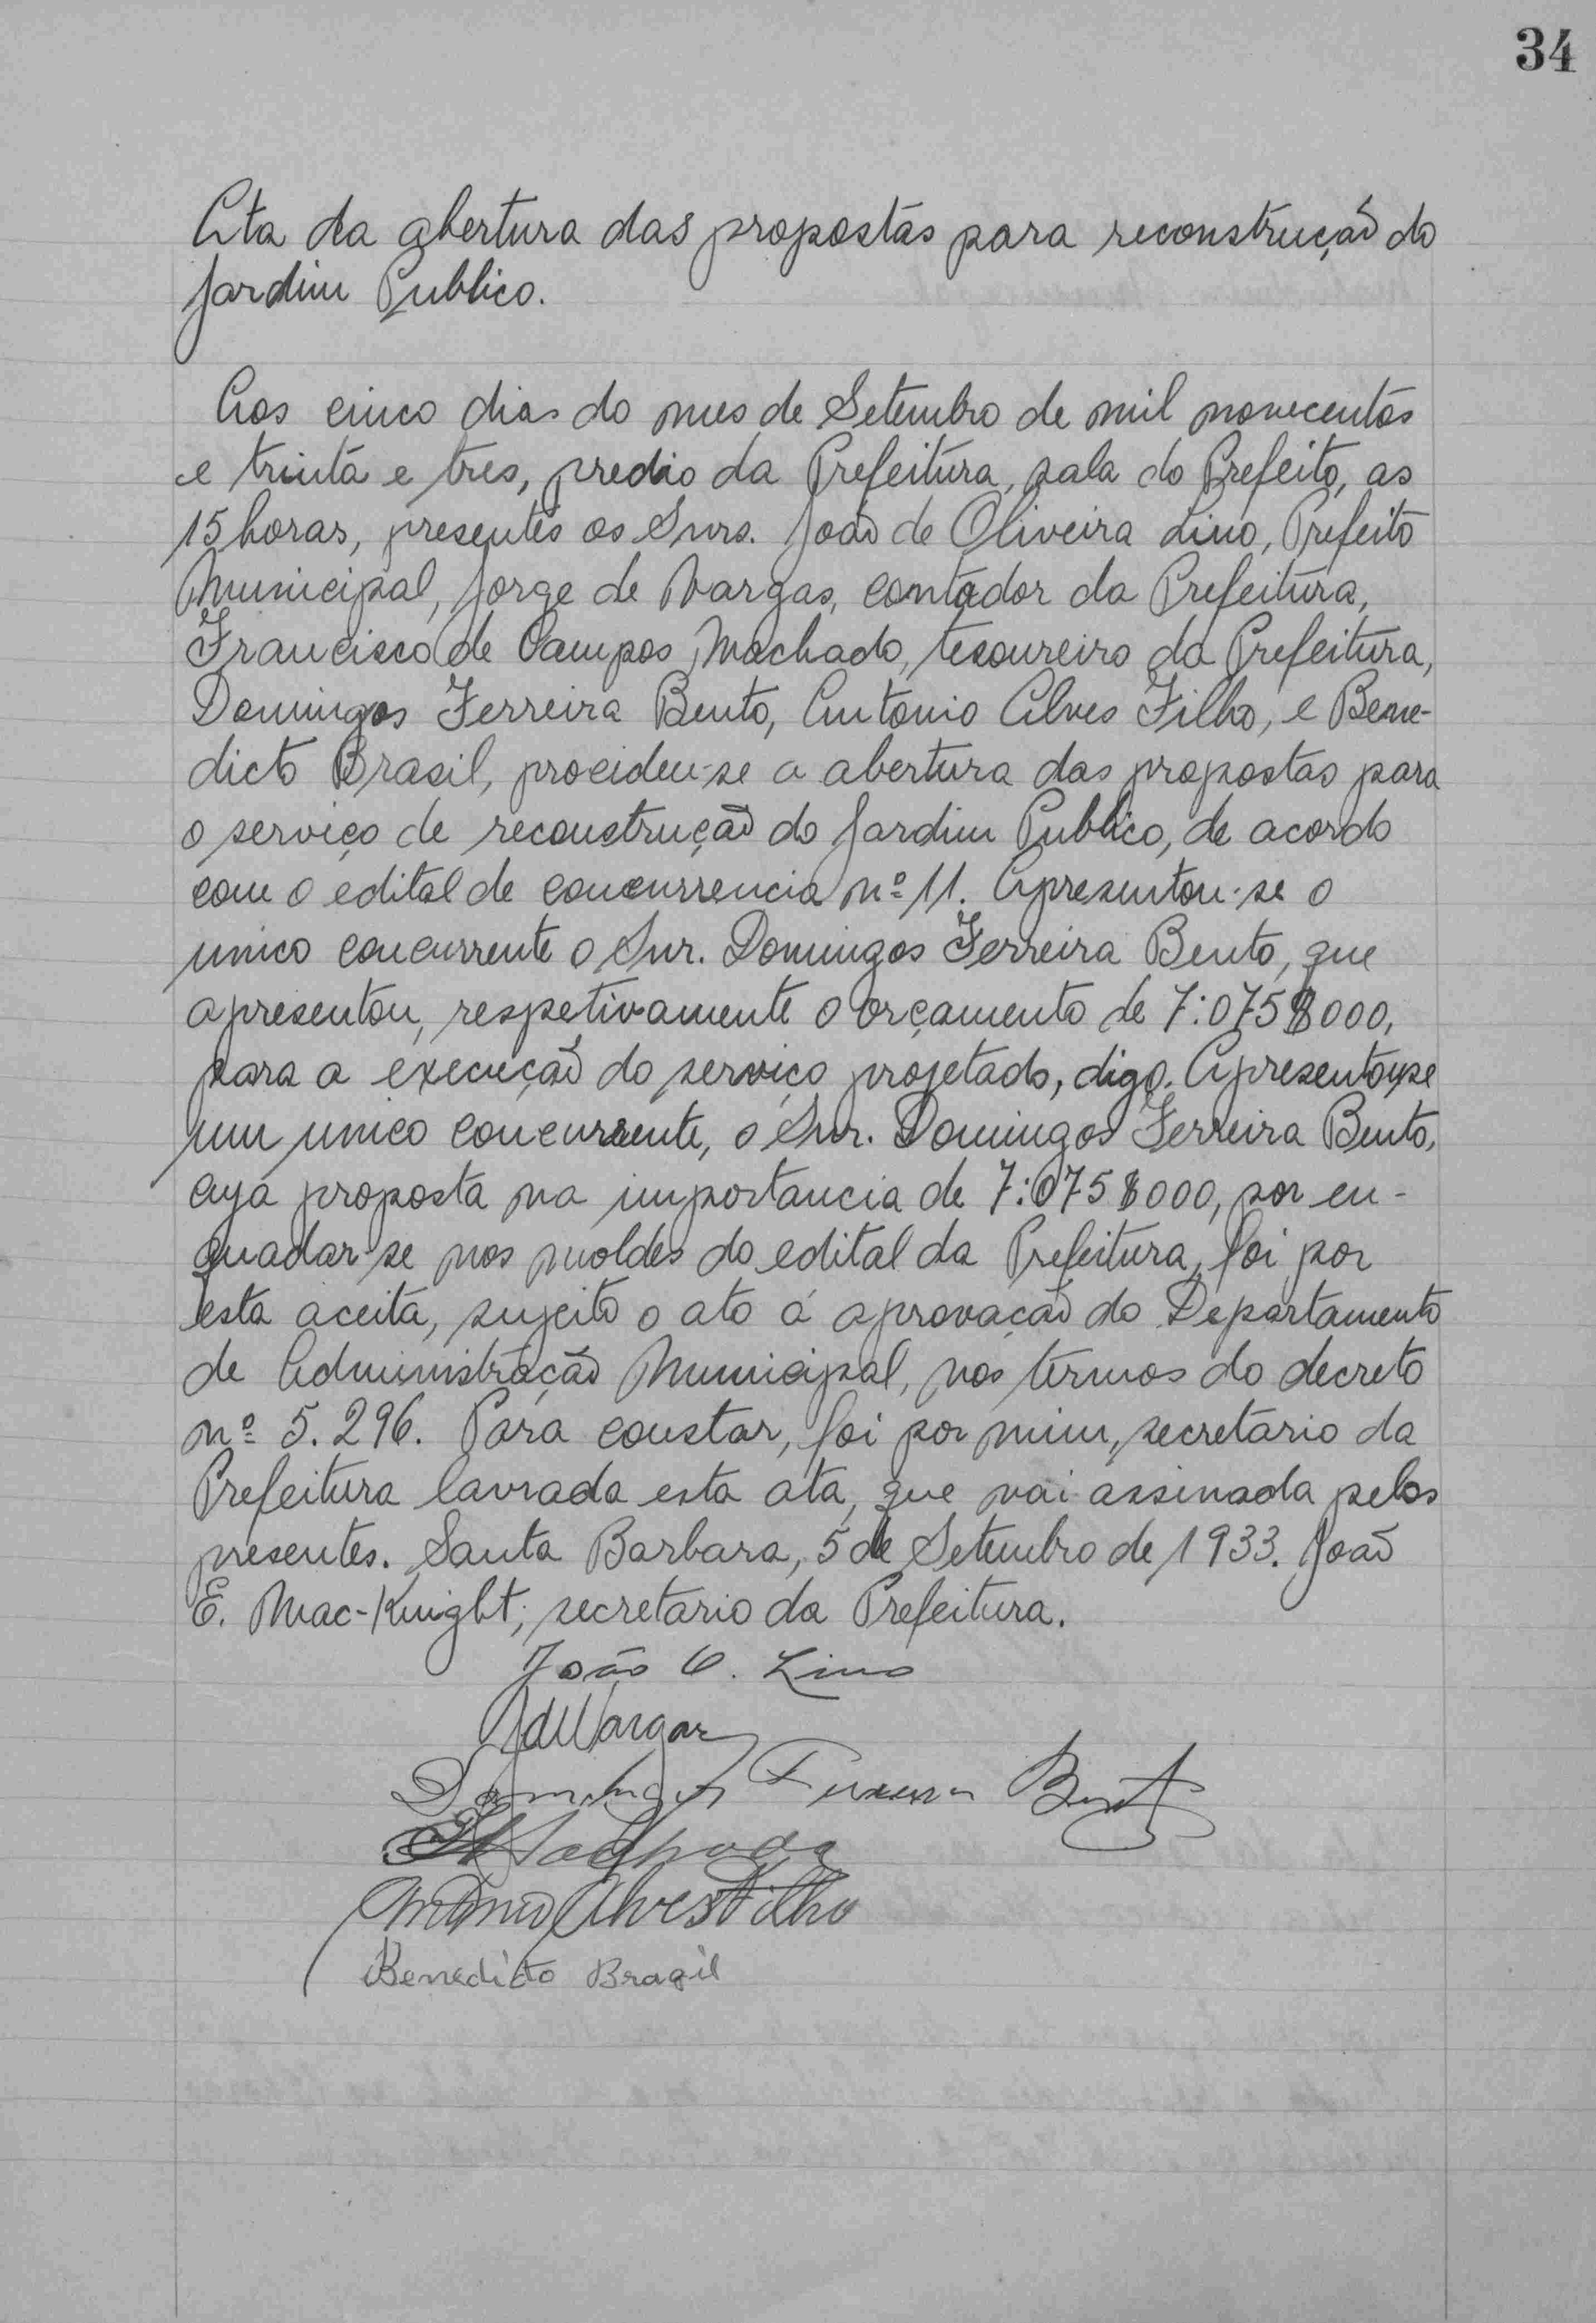 34
Ata da abertura das propostas para reconstrução do
Jardim Publico.
Aos cinco dias do mes de Setembro de mil novecentos
e trinta e tres, predio da Prefeitura, sala do Prefeito, as
15 horas, presentes os Snrs. João de Oliveira Lino, Prefeito
Municipal, Jorge de Vargas, contador da Prefeitura,
Francisco de Campos Machado, tesoureiro da Prefeitura,
Domingos Ferreira Bento, Antonio Alves Filho, e Bene-
dicto Brasil, procideu-se a abertura das propostas para
o serviço de reconstrução do Jardim Publico, de acordo
com o edital de concurrencia nº 11. Apresentou-se o
unico concurrente o Snr. Domingos Ferreira Bento, que
apresentou, respetivamente o orçamento de 7:075$000,
para a execução do serviço projetado, digo. Apresentou-se
um unico concurrente, o Snr. Domingos Ferreira Bento,
cuja proposta na importancia de 7:075$000, por en-
quadar-se nos moldes do edital da Prefeitura, foi por
esta aceita, sujeito o ato á aprovação do Departamento
de Administração Municipal, nos termos do decreto
nº 5.296. Para constar, foi por mim, secretario da
Prefeitura lavrada esta ata, que vai assinada pelos
presentes. Santa Barbara, 5 de Setembro de 1933. João
E. Mac-Knight, secretario da Prefeitura.
João O. Lino
J de Vargas
Domingos Ferreira Bento
Machado
Antonio Alves Filho
Benedicto Brasil